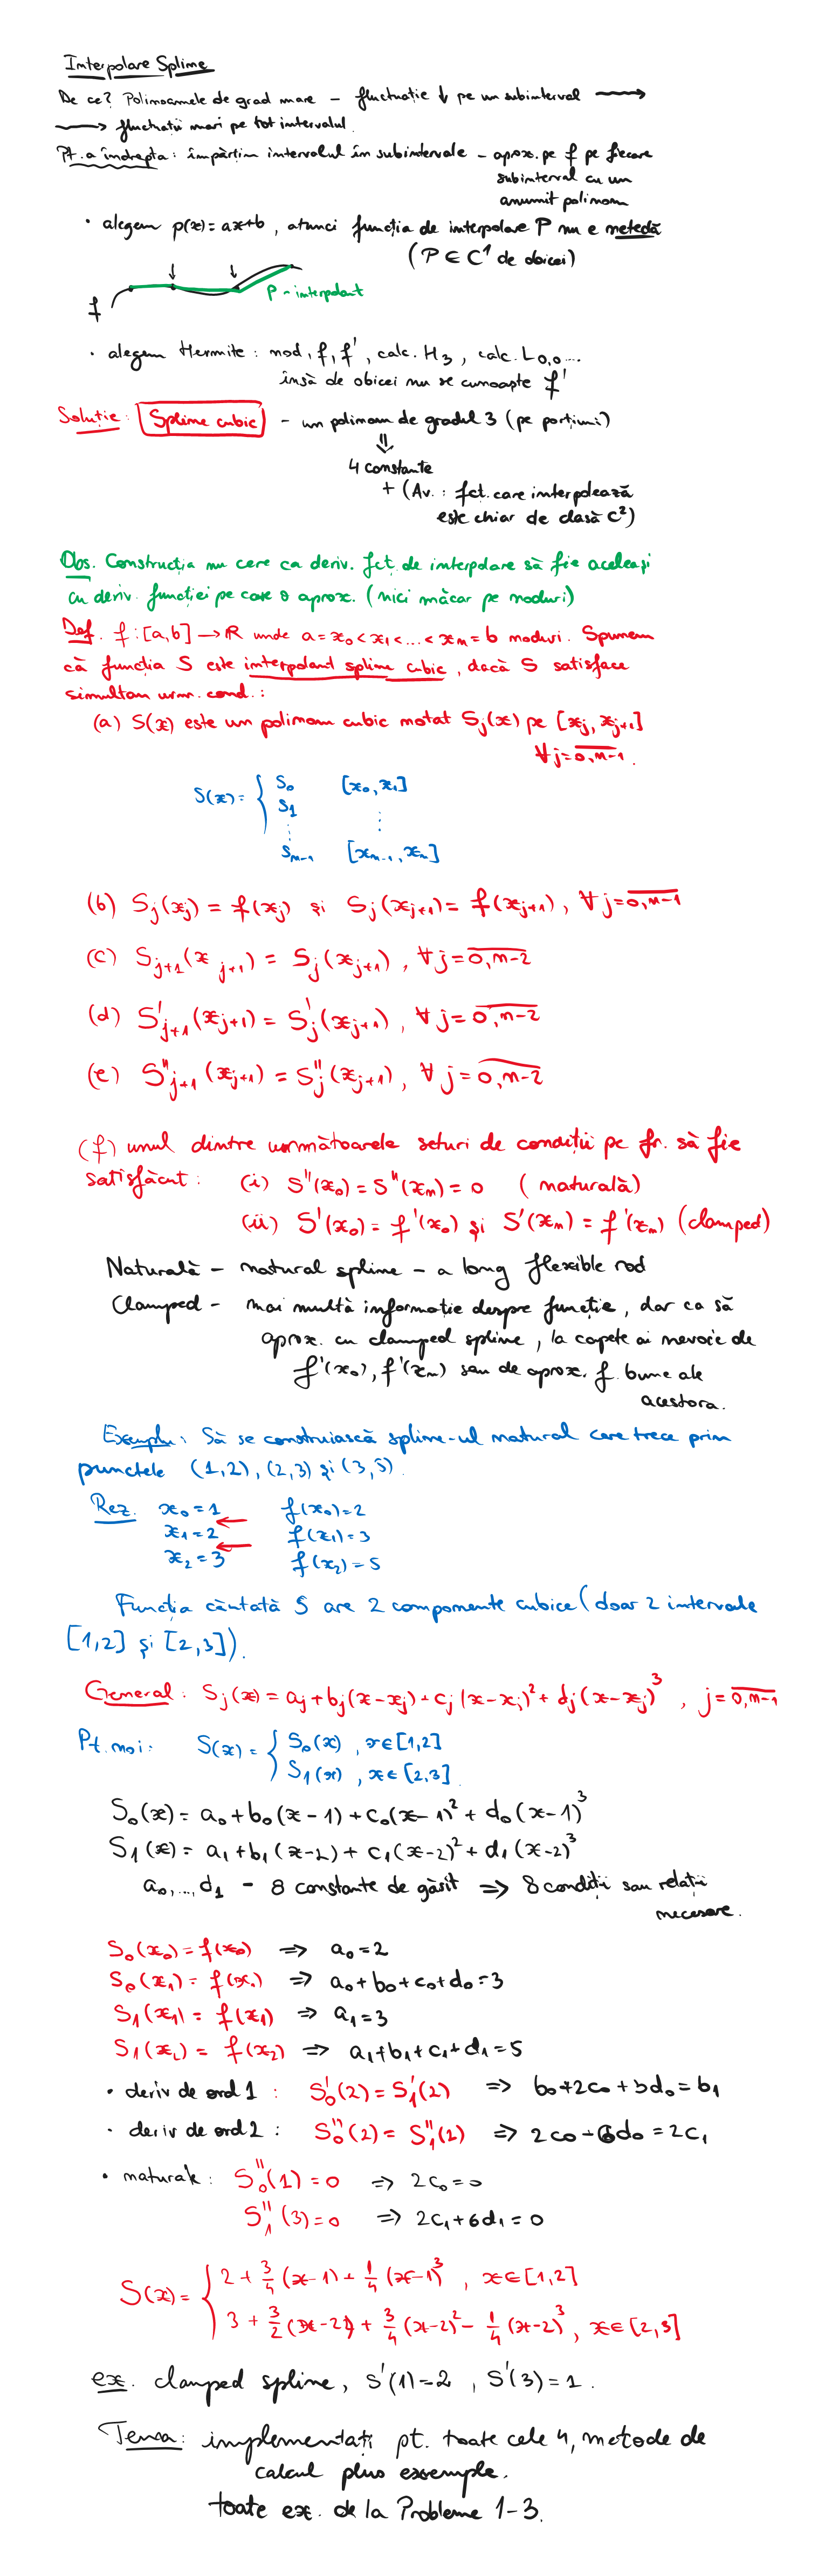 Interpolare Spline
De ce? Polinoamele de grad mare - fluctuație ↓ pe un subinterval ⟶
⟶ fluctuații mari pe tot intervalul.
Pt. a îndrepta: împărțim intervalul în subintervale - aprox. pe f pe fiecare
subinterval cu un
anumit polinom
• alegem p(x)=ax+b, atunci funcția de interpolare P nu e netedă
(P ∈ C¹ de obicei)
P - interpolant
f
• alegem Hermite: nod, f, f', calc. H₃, calc. L₀,₀...
însă de obicei nu se cunoaște f'
Soluție: Spline cubic - un polinom de gradul 3 (pe porțiuni)
⇓
4 constante
+ (Av.: fct. care interpolează
este chiar de clasă C²)
Obs. Construcția nu cere ca deriv. fct. de interpolare să fie aceleași
cu deriv. funcției pe care o aprox. (nici măcar pe noduri)
Def. f:[a,b] → R unde a=x₀<x₁<...<xₙ=b noduri. Spunem
că funcția S este interpolant spline cubic, dacă S satisface
simultan urm. cond.:
(a) S(x) este un polinom cubic notat Sⱼ(x) pe [xⱼ, xⱼ₊₁]
∀ j=0,n-1.
S(x) = { S₀ [x₀,x₁]
S₁
⋮ ⋮
Sₙ₋₁ [xₙ₋₁, xₙ]
(b) Sⱼ(xⱼ) = f(xⱼ) și Sⱼ(xⱼ₊₁) = f(xⱼ₊₁), ∀ j=0,n-1
(c) Sⱼ₊₁(xⱼ₊₁) = Sⱼ(xⱼ₊₁), ∀ j=0,n-2
(d) S'ⱼ₊₁(xⱼ₊₁) = S'ⱼ(xⱼ₊₁), ∀ j=0,n-2
(e) S''ⱼ₊₁(xⱼ₊₁) = S''ⱼ(xⱼ₊₁), ∀ j=0,n-2
(f) unul dintre următoarele seturi de condiții pe fr. să fie
satisfăcut: (i) S''(x₀) = S''(xₙ) = 0 (naturală)
(ii) S'(x₀) = f'(x₀) și S'(xₙ) = f'(xₙ) (clamped)
Naturală - natural spline - a long flexible rod
Clamped - mai multă informație despre funcție, dar ca să
aprox. cu clamped spline, la capete ai nevoie de
f'(x₀), f'(xₙ) sau de aprox. f. bune ale
acestora.
Exemplu: Să se construiască spline-ul natural care trece prin
punctele (1,2), (2,3) și (3,5).
Rez. x₀=1 f(x₀)=2
x₁=2 ← f(x₁)=3
x₂=3 ← f(x₂)=5
Funcția căutată S are 2 componente cubice (doar 2 intervale
[1,2] și [2,3]).
General: Sⱼ(x) = aⱼ+bⱼ(x-xⱼ)+cⱼ(x-xⱼ)²+dⱼ(x-xⱼ)³, j=0,n-1
Pt. noi: S(x) = { S₀(x), x∈[1,2]
S₁(x), x∈[2,3].
S₀(x) = a₀+b₀(x-1)+c₀(x-1)²+d₀(x-1)³
S₁(x) = a₁+b₁(x-2)+c₁(x-2)²+d₁(x-2)³
a₀,...,d₁ - 8 constante de găsit ⇒ 8 condiții sau relații
necesare.
S₀(x₀) = f(x₀) ⇒ a₀=2
S₀(x₁) = f(x₁) ⇒ a₀+b₀+c₀+d₀=3
S₁(x₁) = f(x₁) ⇒ a₁=3
S₁(x₂) = f(x₂) ⇒ a₁+b₁+c₁+d₁=5
• deriv de ord 1: S₀'(2) = S₁'(2) ⇒ b₀+2c₀+3d₀=b₁
• deriv de ord 2: S₀''(2) = S₁''(2) ⇒ 2c₀+6d₀=2c₁
• naturale: S₀''(1)=0 ⇒ 2c₀=0
S₁''(3)=0 ⇒ 2c₁+6d₁=0
S(x) = { 2+3/4(x-1)+1/4(x-1)³, x∈[1,2]
3+3/2(x-2)+3/4(x-2)²-1/4(x-2)³, x∈[2,3]
ex. clamped spline, S'(1)=2, S'(3)=1.
Tema: implementați pt. toate cele 4, metode de
calcul plus exemple.
toate ex. de la Probleme 1-3.